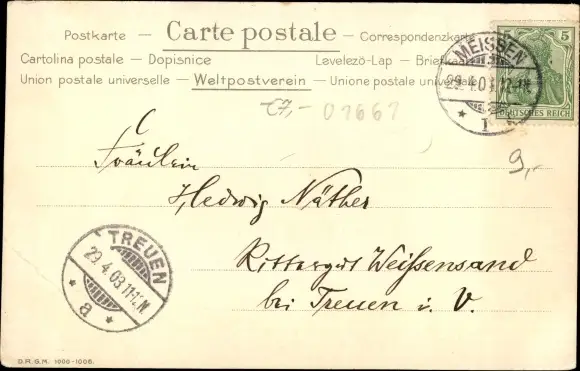 Postkarte — Carte postale — Correspondenzkarte
Cartolina postale — Dopisnice Levelezö-Lap — Briefkaart
Union postale universelle — Weltpostverein — Unione postale universale
5
DEUTSCHES REICH
MEISSEN
29.4.03.
07667
9,-
Fräulein
Hedwig Näther
Rittergut Weißensand
bei Treuen i. V.
TREUEN
29.4.03.11-12.N.
a
D.R.G.M. 1906-1006.